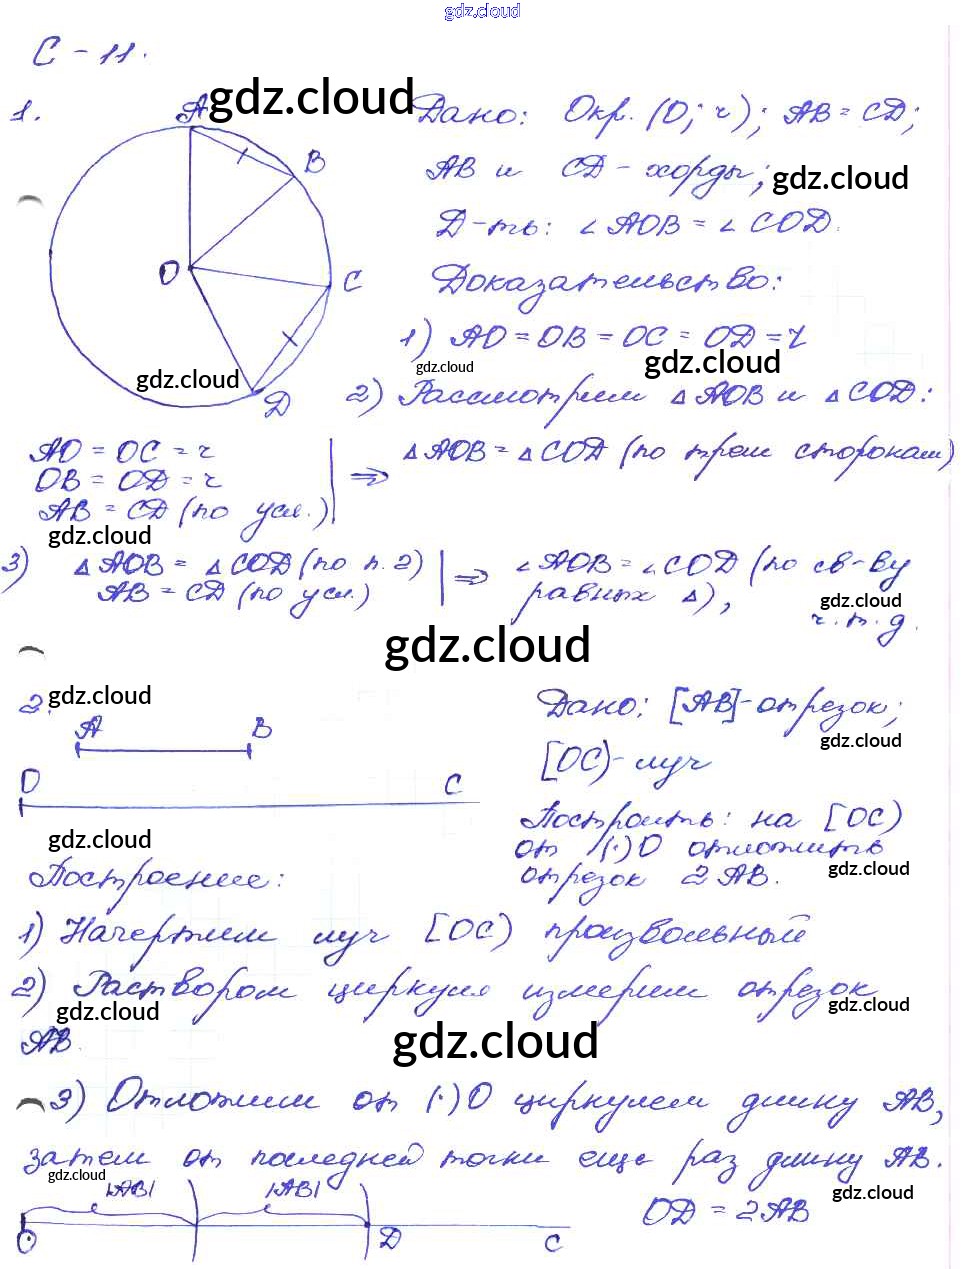 gdz.cloud
С - 11.
1.
A
gdz.cloud
Дано: Окр. (O; r); AB = CD;
B
AB и CD - хорды;
gdz.cloud
Д-ть: ∠AOB = ∠COD.
O
C
Доказательство:
1) AO = OB = OC = OD = r
gdz.cloud
gdz.cloud
gdz.cloud
D
2) Рассмотрим △AOB и △COD:
AO = OC = r
OB = OD = r
AB = CD (по усл.)
⇒ △AOB = △COD (по трем сторонам)
gdz.cloud
3) △AOB = △COD (по п. 2)
AB = CD (по усл.)
⇒ ∠AOB = ∠COD (по св-ву
равных △),
gdz.cloud
ч.т.д.
gdz.cloud
gdz.cloud
2.
A B
Дано: [AB]-отрезок;
gdz.cloud
[OC)-луч
O C
Построить: на [OC)
gdz.cloud
от (·)O отложить
gdz.cloud
отрезок 2AB.
Построение:
1) Начертим луч [OC) произвольный
2) Раствором циркуля измерим отрезок
gdz.cloud
gdz.cloud
AB.
gdz.cloud
3) Отложим от (·)O циркулем длину AB,
gdz.cloud
затем от последней точки еще раз длину AB.
gdz.cloud
gdz.cloud
|AB| |AB|
OD = 2AB
O D C